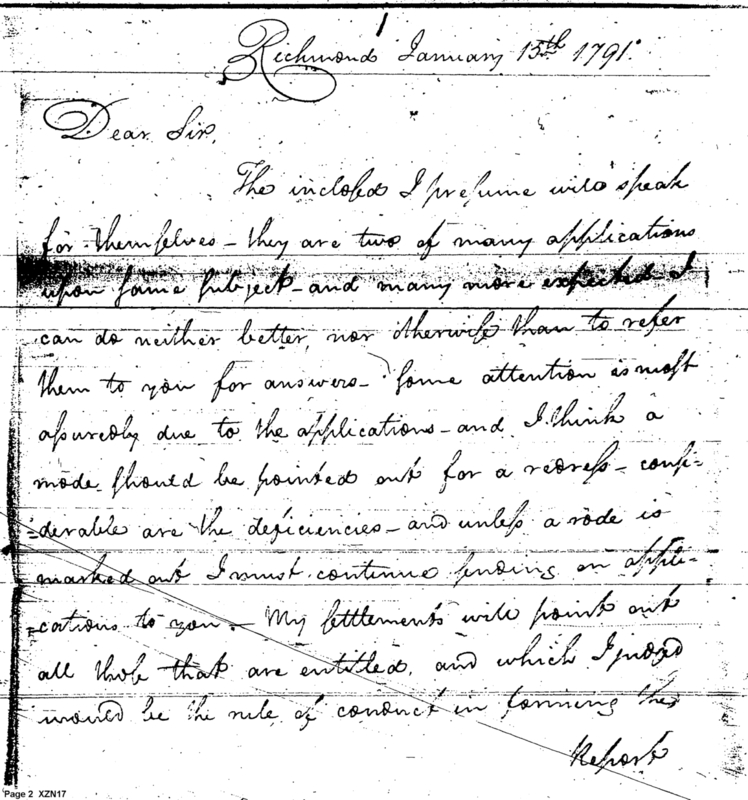 Richmond January 15th 1791.
Dear Sir,
The inclosed I presume will speak
for themselves – they are two of many applications
upon same subject – and many more expected I
can do neither better, nor otherwise than to refer
them to you for answers – Some attention is most
assuredly due to the applications – and I think a
mode should be pointed out for a redress – consi-
=derable are the deficiencies – and unless a rode is
marked out I must continue sending on appli-
=cations to you. – My settlements will point out
all those that are entitled, and which I judged
would be the rule of conduct in forming the
Report
Page 2 XZN17